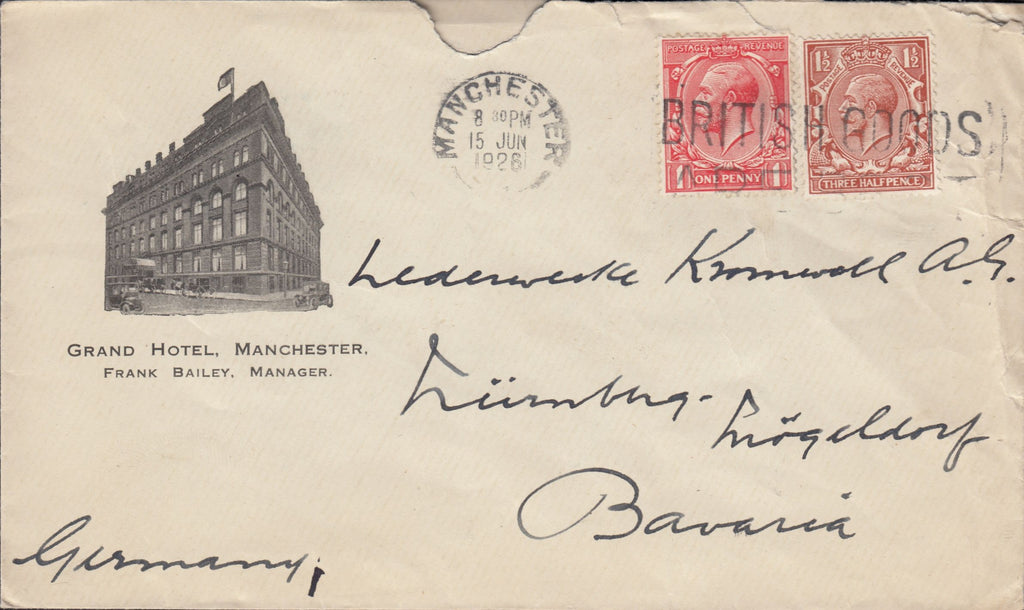 MANCHESTER
8 30 PM
15 JUN
1926
POSTAGE REVENUE
ONE PENNY
1 1
1½ 1½
POSTAGE REVENUE
THREE HALFPENCE
BRITISH GOODS
GRAND HOTEL, MANCHESTER,
FRANK BAILEY, MANAGER.
Lederwerke Kromwell A.G.
Nürnberg-
Mögeldorf
Bavaria
Germany